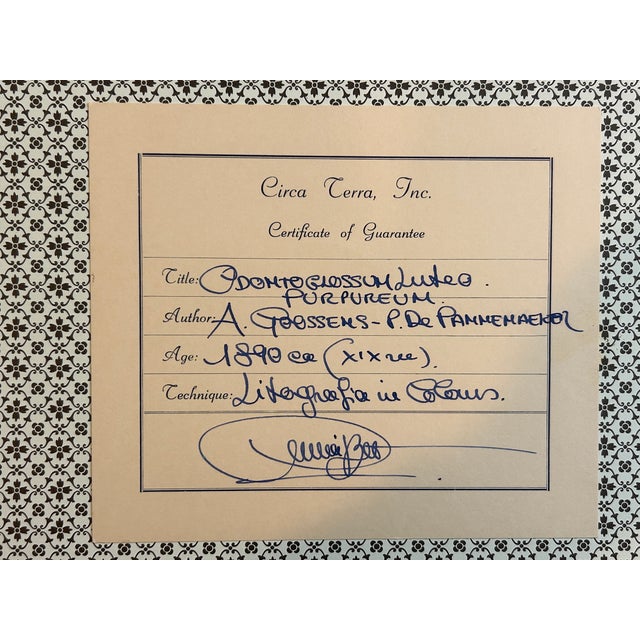 Circa Terra, Inc.
Certificate of Guarantee
Title: ODONTOGLOSSUM Luteo
PURPUREUM.
Author: A. GOOSSENS - P. De PANNEMAEKER
Age: 1890 ca (XIX sec).
Technique: Litografia in Colours.